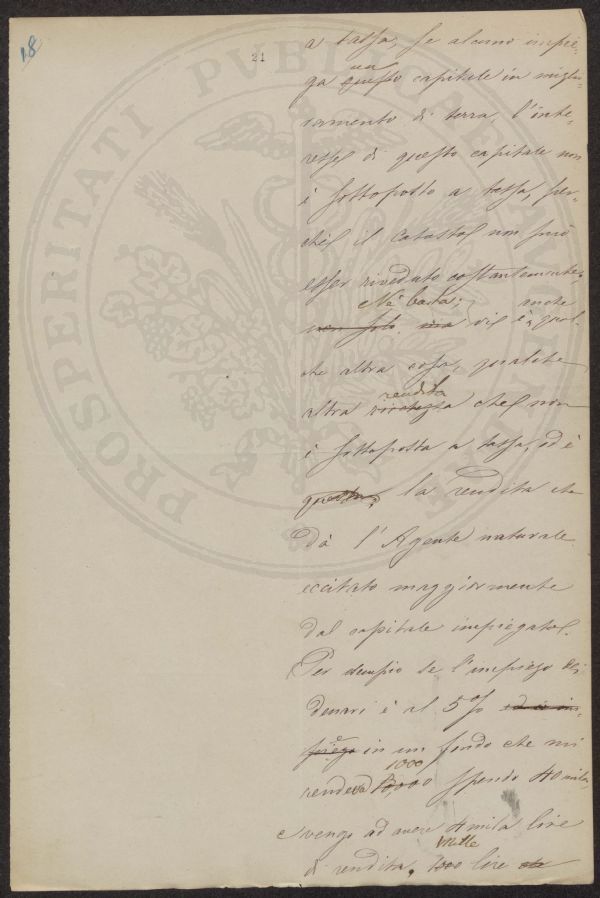 18
21
PROSPERITATI PVBLICAE AVGENDAE
a tassa, se alcuno impie-
un
ga questo capitale in miglio-
ramento di terra, l'inte-
resse di questo capitale non
è sottoposto a tassa, per-
chè il Catasto non può
esser riveduto costantemente;
Nè basta; anche
non solo, ma vi è, qual-
che altra cosa, qualche
rendita
altra ricchezza che non
è sottoposta a tassa, ed è
questa; la rendita che
dà l'Agente naturale
eccitato maggiormente
dal capitale impiegato.
Per esempio se l'impiego dei
denari è al 5 %o ed io im-
piego in un fondo che mi
1000
rendeva spendo 40 mila,
e vengo ad avere 4 mila lire
mille
di rendita, 1000 lire che